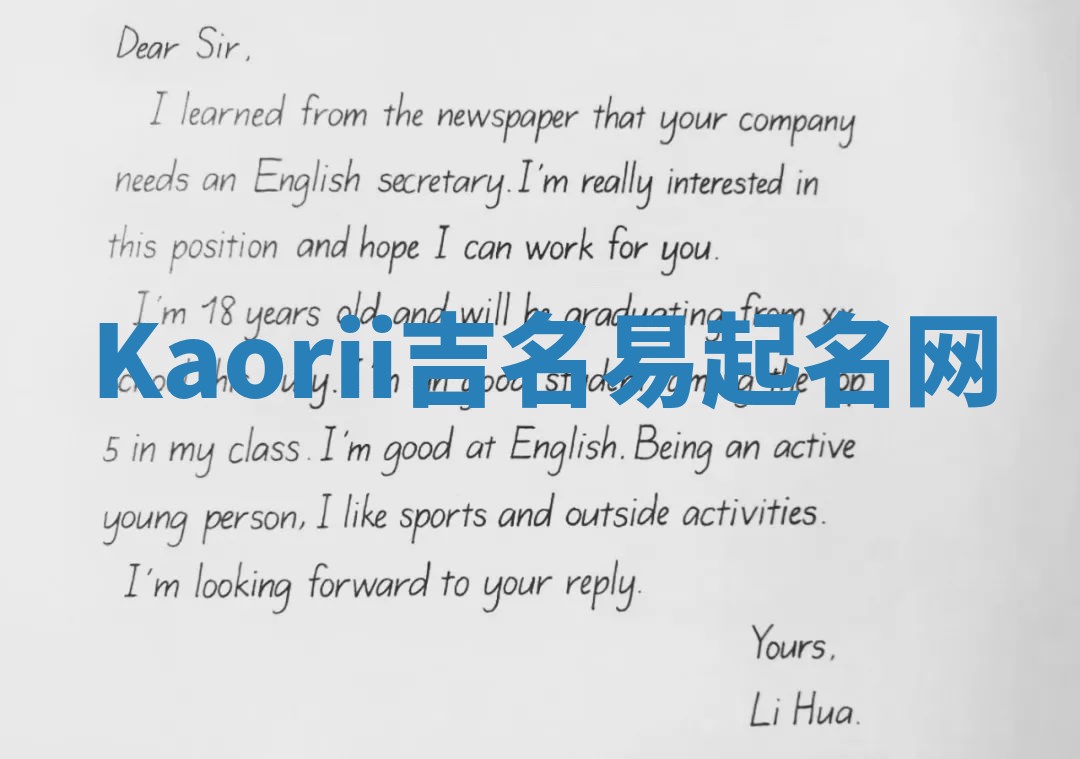 Dear Sir,
I learned from the newspaper that your company
needs an English secretary. I'm really interested in
this position and hope I can work for you.
I'm 18 years old and will be graduating from xx
Kaorii吉名易起名网
5 in my class. I'm good at English. Being an active
young person, I like sports and outside activities.
I'm looking forward to your reply.
Yours,
Li Hua.